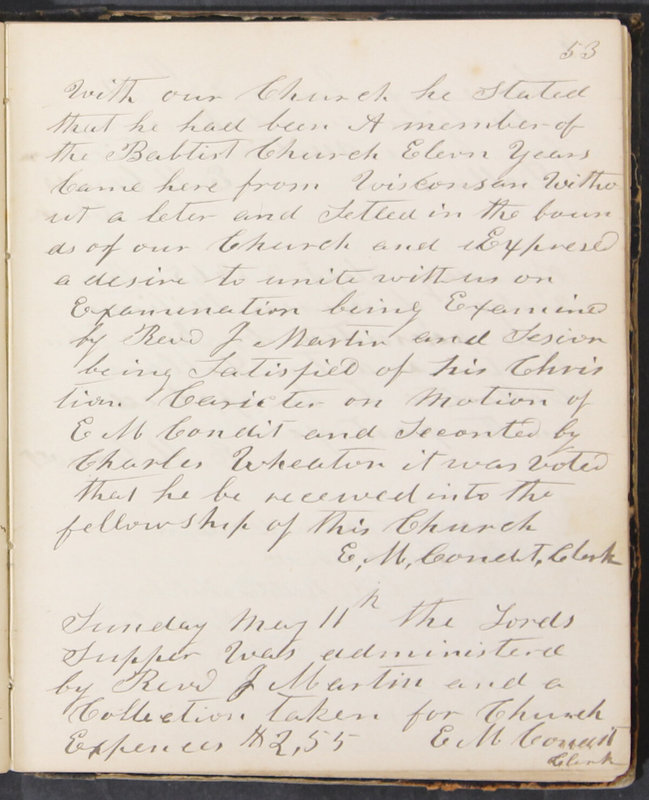 53
With our Church he stated
that he had been A member of
the Babtist Church Elevn Years
Came here from Wisconsan Witho
ut a leter and Setled in the boun
ds of our Church and Expresed
a desire to unite with us on
Examination being Examined
by Revd J Martin and Sesion
being Satisfied of his Chris
tian Caricter on Motion of
E M Condit and Seconted by
Charles Wheaton it was Voted
that he be receved into the
fellowship of this Church
E, M, Condit, Clerk
Sunday May 11th the Lords
Supper Was administerd
by Revd J Martin and a
Collection taken for Church
Expences $2,55 E M Condit
Clerk